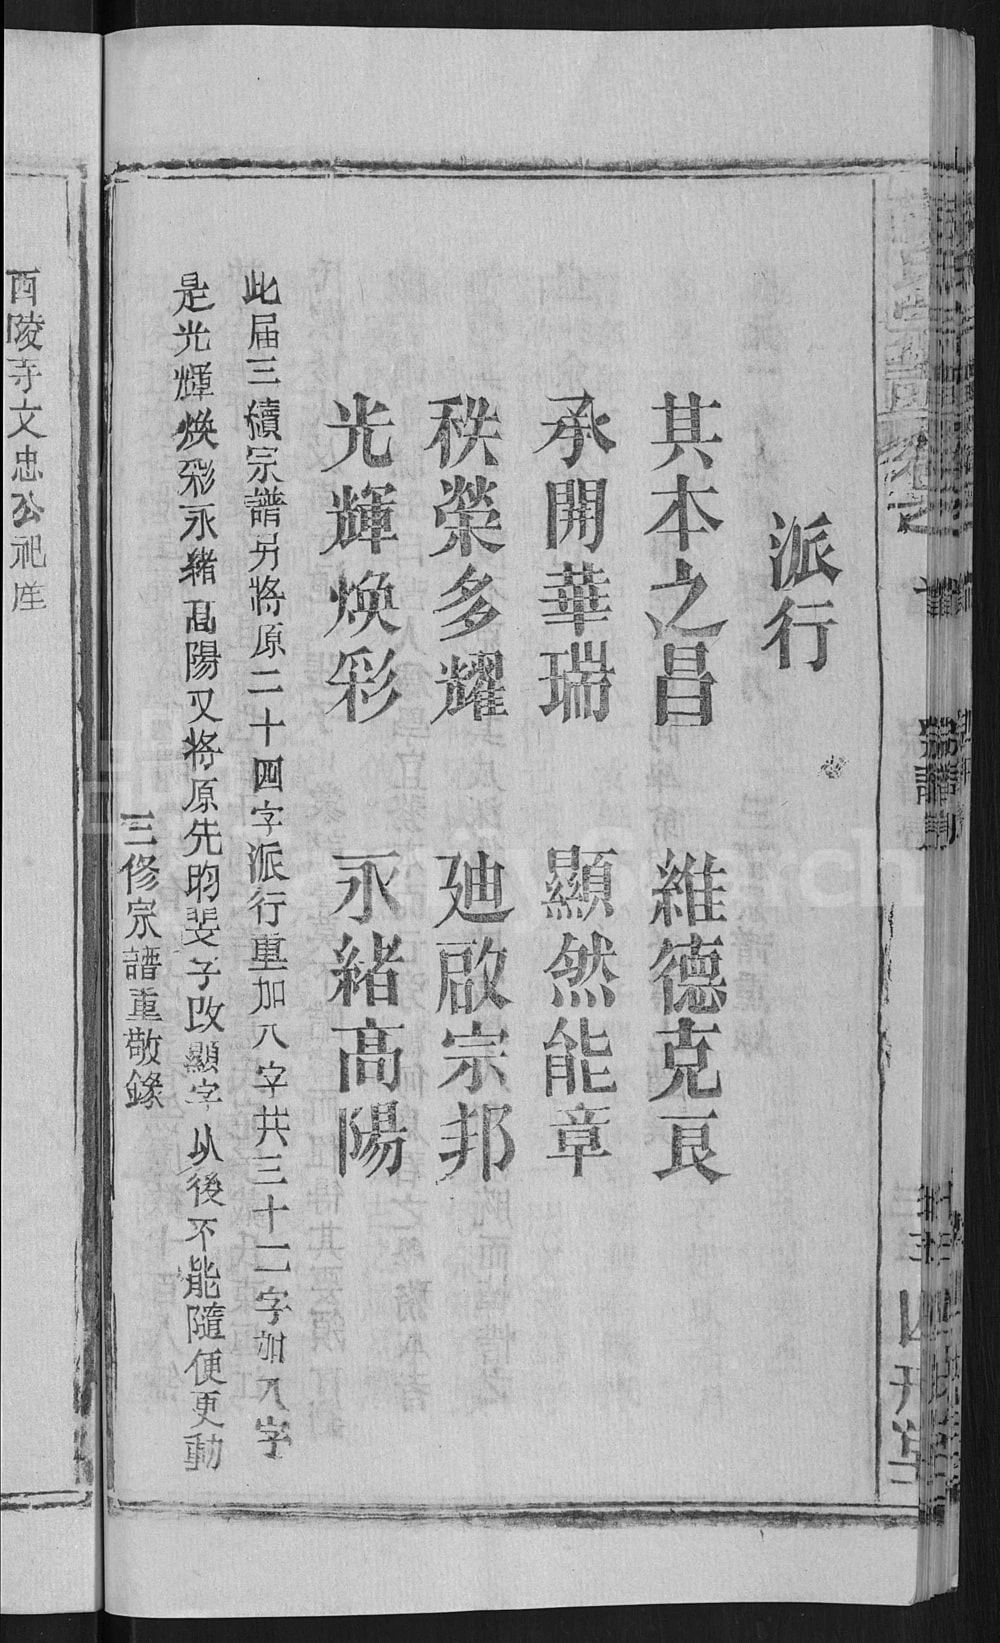 派行
其本之昌　維德克良
承開華瑞　顯然能章
秩榮多耀　廸啟宗邦
光輝煥彩　永緒高陽
此届三續宗譜另將原二十四字派行重加八字共三十二字加八字
是光輝煥彩永緒高陽又將原先昀斐子改顯字以後不能隨便更動
三修宗譜重敬錄
酉陵寺文忠公祀産